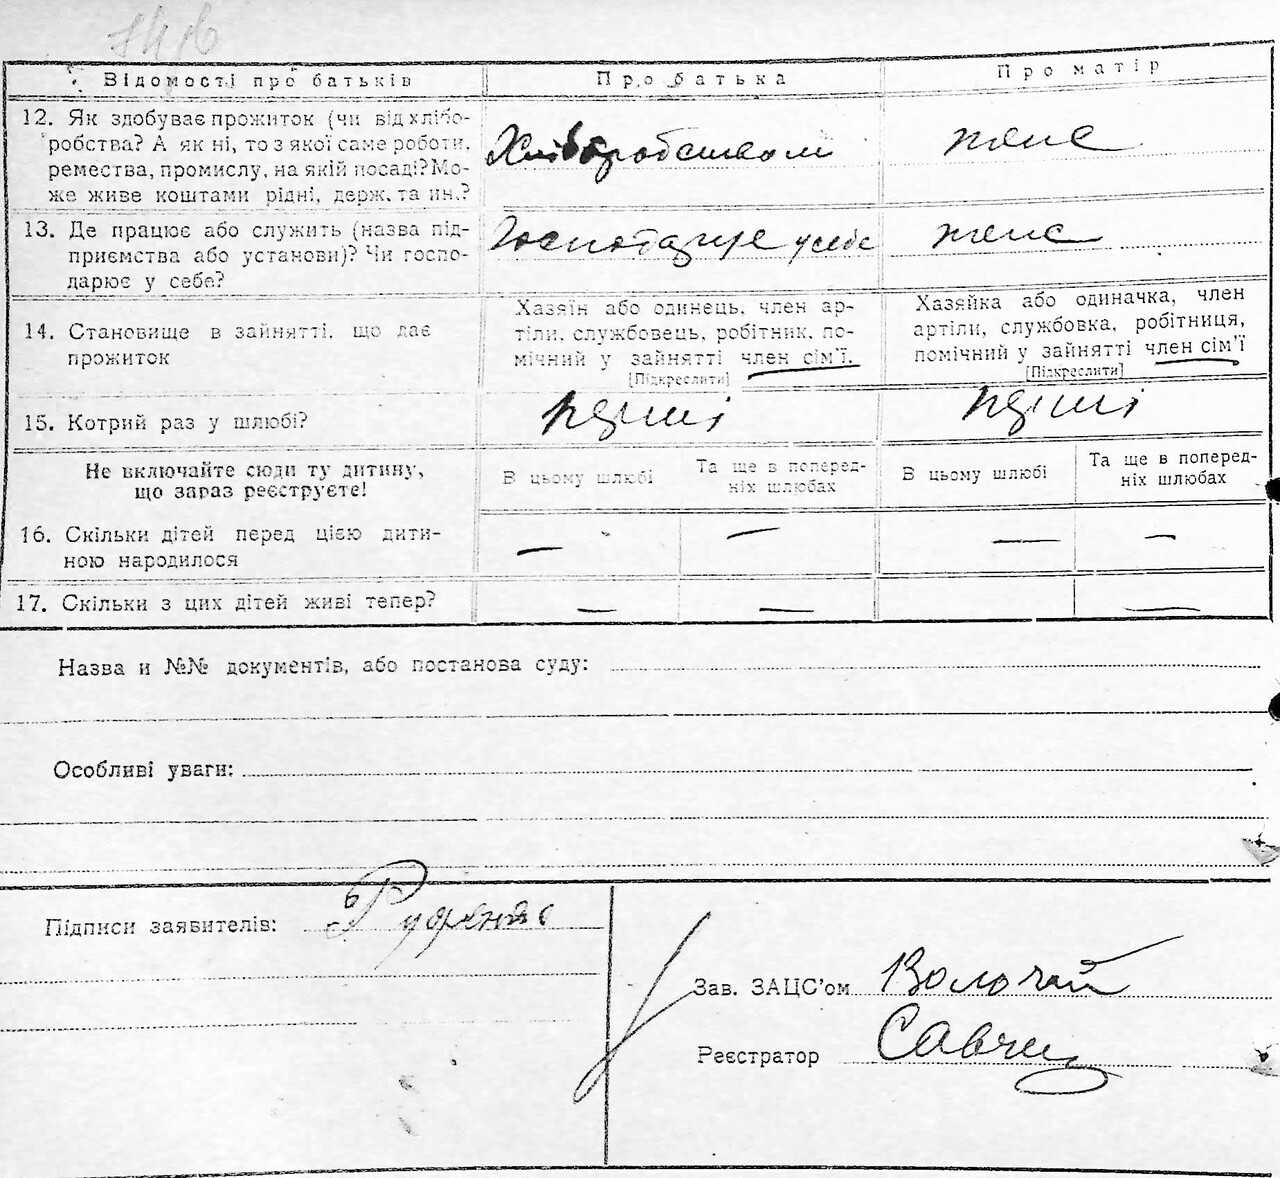 Відомості про батьків Про батька Про матір
12. Як здобуває прожиток (чи від хлібо-
робства? А як ні, то з якої саме роботи,
ремества, промислу, на якій посаді? Мо-
же живе коштами рідні, держ. та ин.?
Хліборобством
теж
13. Де працює або служить (назва під-
приємства або установи)? Чи госпо-
дарює у себе?
Господарює у себе
теж
14. Становище в зайнятті, що дає
прожиток
Хазяїн або одинець, член ар-
тіли, службовець, робітник, по-
мічний у зайнятті член сім'ї.
[Підкреслити]
Хазяйка або одиначка, член
артіли, службовка, робітниця,
помічний у зайнятті член сім'ї
[Підкреслити]
15. Котрий раз у шлюбі?
перший
перший
Не включайте сюди ту дитину,
що зараз реєструєте!
В цьому шлюбі
Та ще в поперед-
ніх шлюбах
В цьому шлюбі
Та ще в поперед-
ніх шлюбах
16. Скільки дітей перед цією дити-
ною народилося
— — — —
17. Скільки з цих дітей живі тепер?
— — —
Назва и №№ документів, або постанова суду:
Особливі уваги:
Підписи заявителів:
Зав. ЗАЦС'ом Волочай
Реєстратор